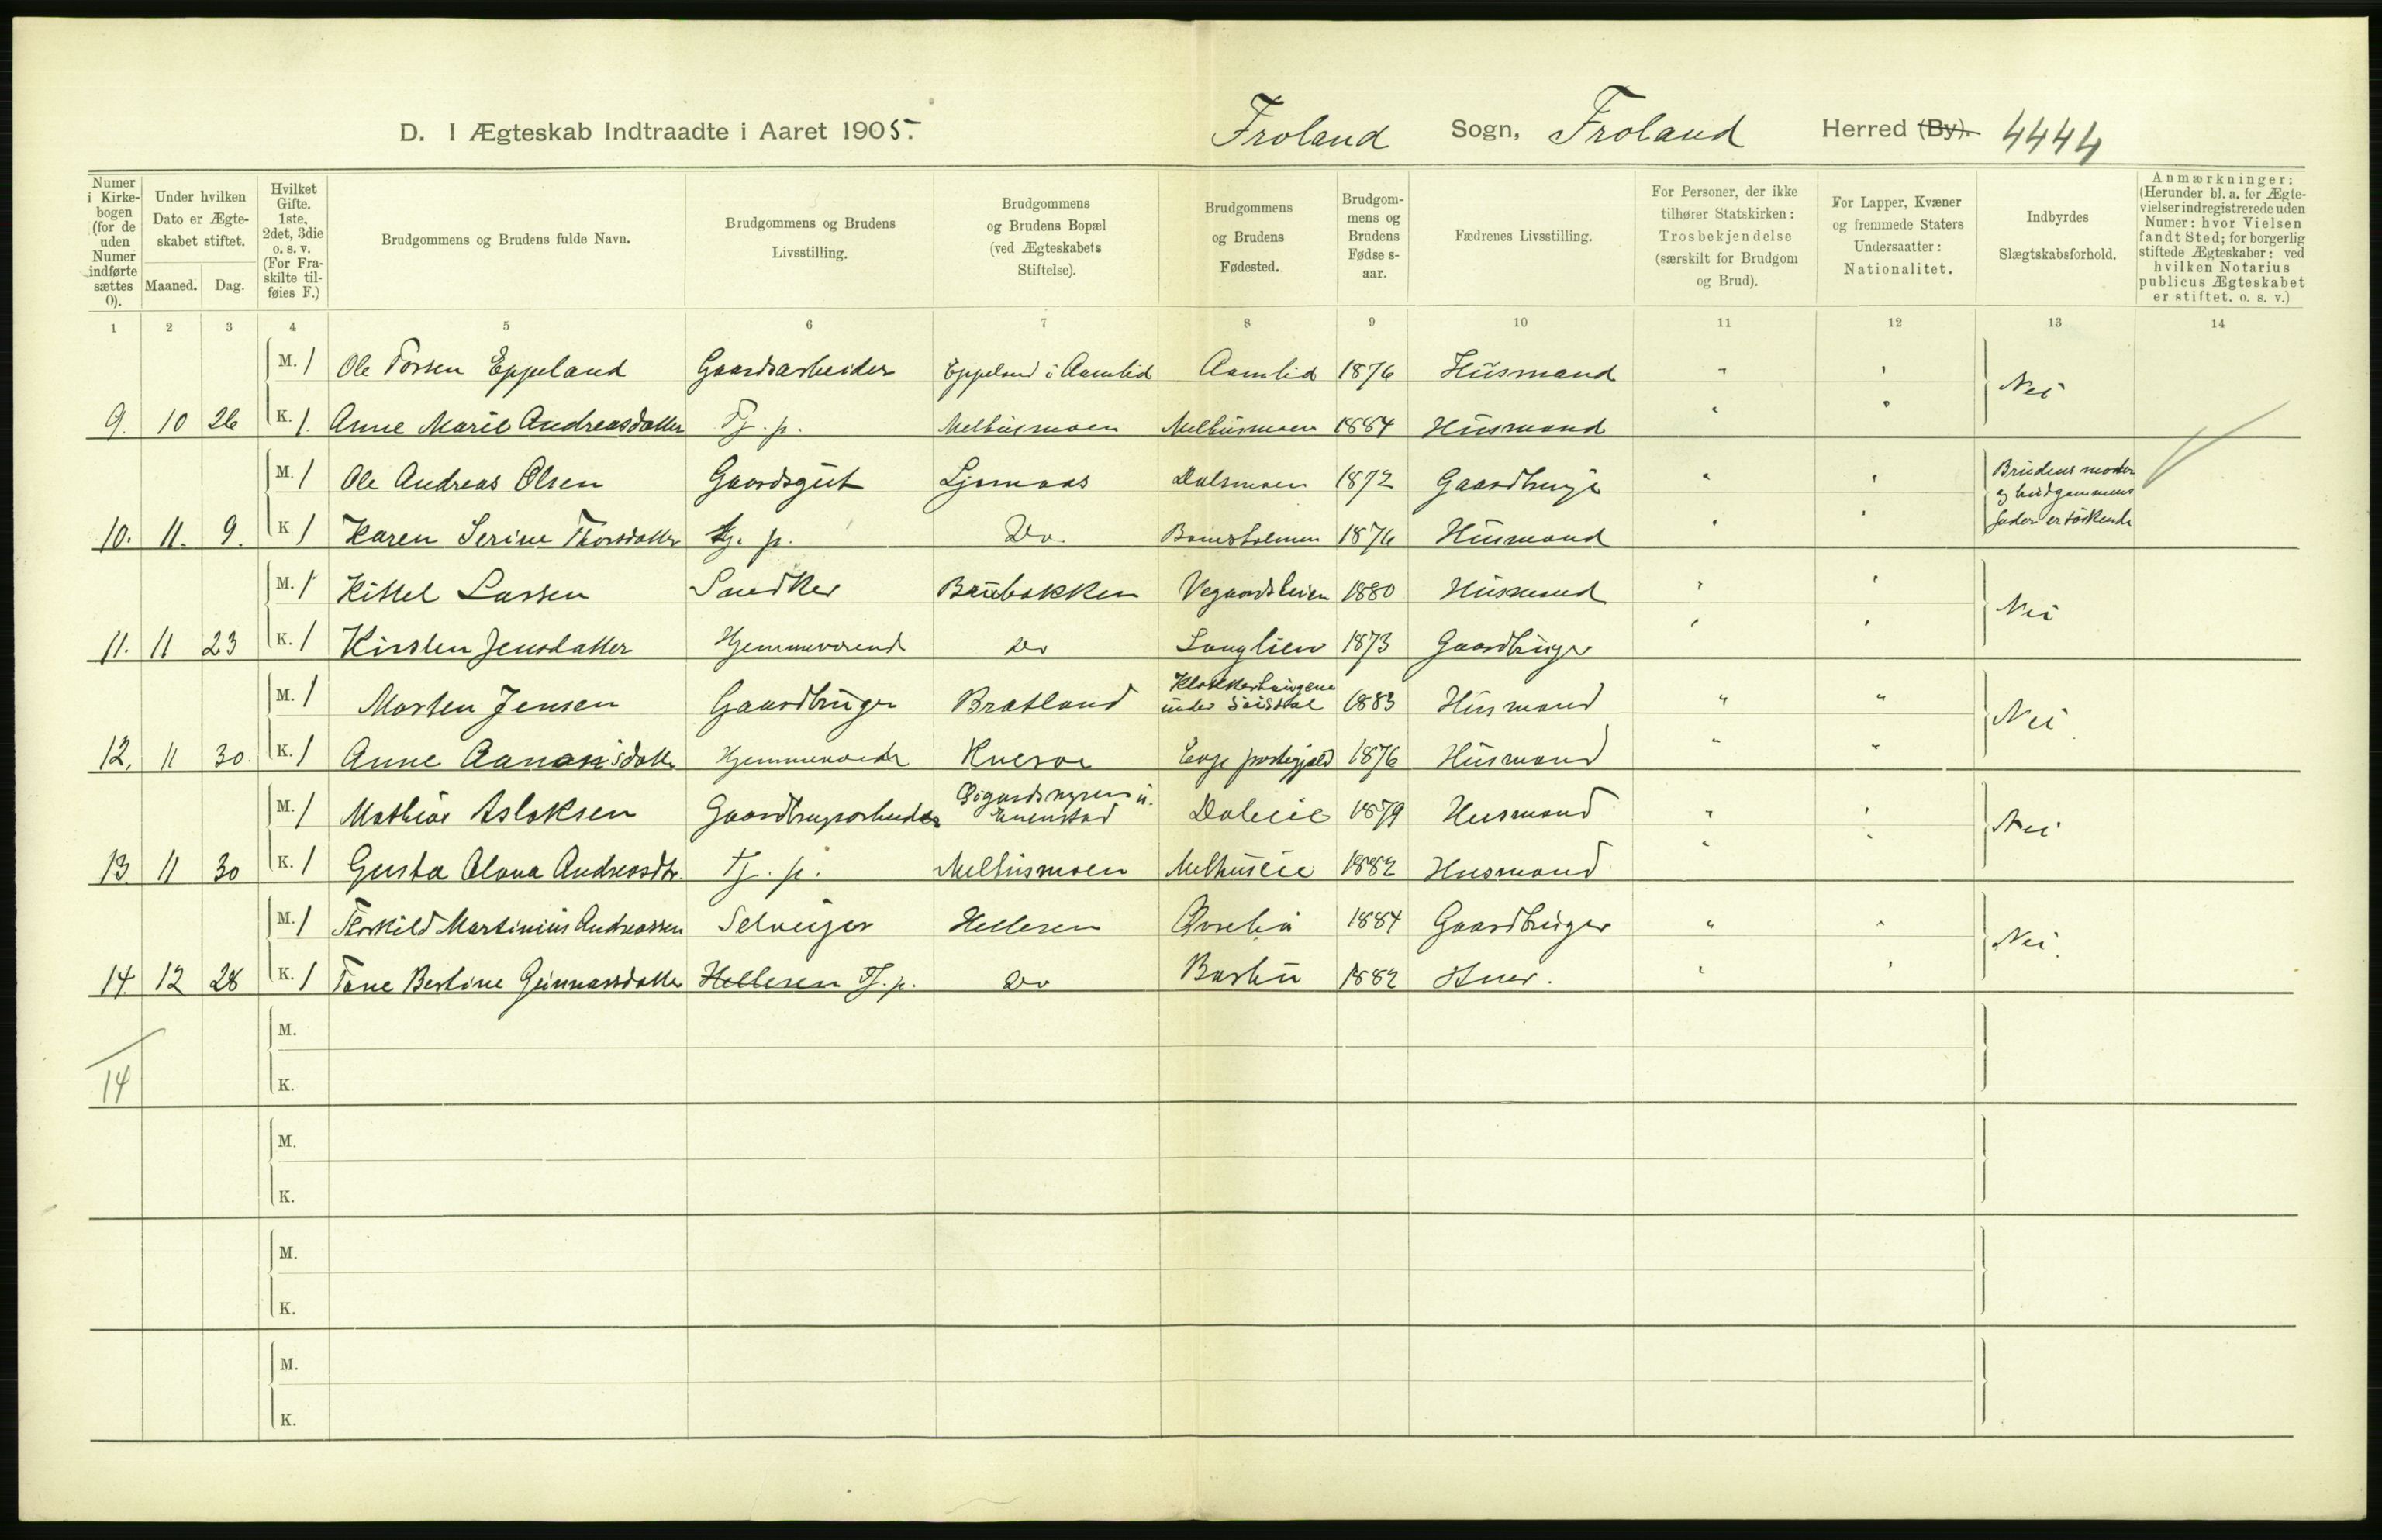 D. I Ægteskab Indtraadte i Aaret 1905. Froland Sogn, Froland Herred (By). 4444
Numer i Kirkebogen (for de uden Numer indførte sættes 0).
Under hvilken Dato er Ægteskabet stiftet.
Maaned. Dag.
Hvilket Gifte. 1ste, 2det, 3die o. s. v. (For Fraskilte tilføies F.)
Brudgommens og Brudens fulde Navn.
Brudgommens og Brudens Livsstilling.
Brudgommens og Brudens Bopæl (ved Ægteskabets Stiftelse).
Brudgommens og Brudens Fødested.
Brudgommens og Brudens Fødselsaar.
Fædrenes Livsstilling.
For Personer, der ikke tilhører Statskirken: Trosbekjendelse (særskilt for Brudgom og Brud).
For Lapper, Kvæner og fremmede Staters Undersaatter: Nationalitet.
Indbyrdes Slægtskabsforhold.
Anmærkninger: (Herunder bl. a. for Ægtevielser indregistrerede uden Numer: hvor Vielsen fandt Sted; for borgerlig stiftede Ægteskaber: ved hvilken Notarius publicus Ægteskabet er stiftet, o. s. v.)
1 2 3 4 5 6 7 8 9 10 11 12 13 14
M. 1 Ole Torsen Eppeland Gaardsarbeider Eppeland i Aamlid Aamlid 1876 Husmand " " Nei
9. 10 26 K. 1. Anne Marie Andreasdatter Tj. p. Melhusmoen Melhusmoen 1884 Husmand " "
M. 1 Ole Andreas Olsen Gaardsgut Ljomaas Dalsmoen 1872 Gaardbruger " " Brudens moder og brudgommens fader er søskende
10. 11. 9. K 1 Karen Serine Thorsdatter tj. p. Do. 1876 Husmand " "
M. 1 Kittel Larsen Snedker Brubakken Vegaardsheien 1880 Husmand " " Nei
11. 11 23 K. 1 Kirsten Jensdatter Hjemmeværende Do Langlien 1873 Gaardbruger " "
M. 1 Morten Jensen Gaardbruger Bratland under 1883 Husmand " " Nei
12. 11 30. K. 1 Anne Aanonsdatter Hjemmeværende Evje prestegjeld 1876 Husmand " "
M. 1 Mathias Aslaksen Gaardbrugsarbeider Sigurdsmyren u. Evenstad 1879 Husmand " " Nei
13. 11 30 K. 1 Gusta Olava Andreasdtr. Tj. p. Melhusmoen Melhuseie 1882 Husmand " "
M. 1 Torkild Martinius Andreassen Selveier Hellesen 1884 Gaardbruger " " Nei.
14. 12 28 K. 1 Tone Bertine Gunnarsdatter Hellesen Tj. p. Do Bustu 1882 Husm. " "
M.
14 K.
M.
K.
M.
K.
M.
K.